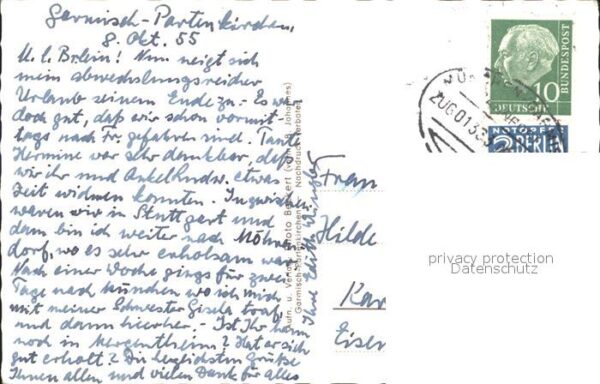 Garmisch-Partenkirchen,
8. Okt. 55
M. l. Brlein! Nun neigt sich
mein abwechslungsreicher
Urlaub seinem Ende zu. - Es war
doch gut, daß wir schon vormit-
tags nach Fr. gefahren sind. Tante
Hermine war sehr dankbar, daß
wir ihr und etwas
Zeit widmen konnten. Inzwischen
waren wir in Stuttgart und
dann bin ich weiter nach Möhren-
dorf, wo es sehr erholsam war
Nach einer Woche gings für zwei
Tage nach München wo ich mich
mit meiner Schwester Gisela traf,
und dann hierher. - Ist Ihr Mann
noch in Mergentheim? Hat er sich
gut erholt? Die herzlichsten Grüße
Ihnen allen und vielen Dank für alles
Ihre Edith
Aufn. u. Verlag Photo (vorm. B. Johannes)
Garmisch-Partenkirchen Nachdruck verboten
Frau
Hilde
Kar
Eisen
10
DEUTSCHE
BUNDESPOST
NOTOPFER
2 BERLIN
ZUG 0133
privacy protection
Datenschutz